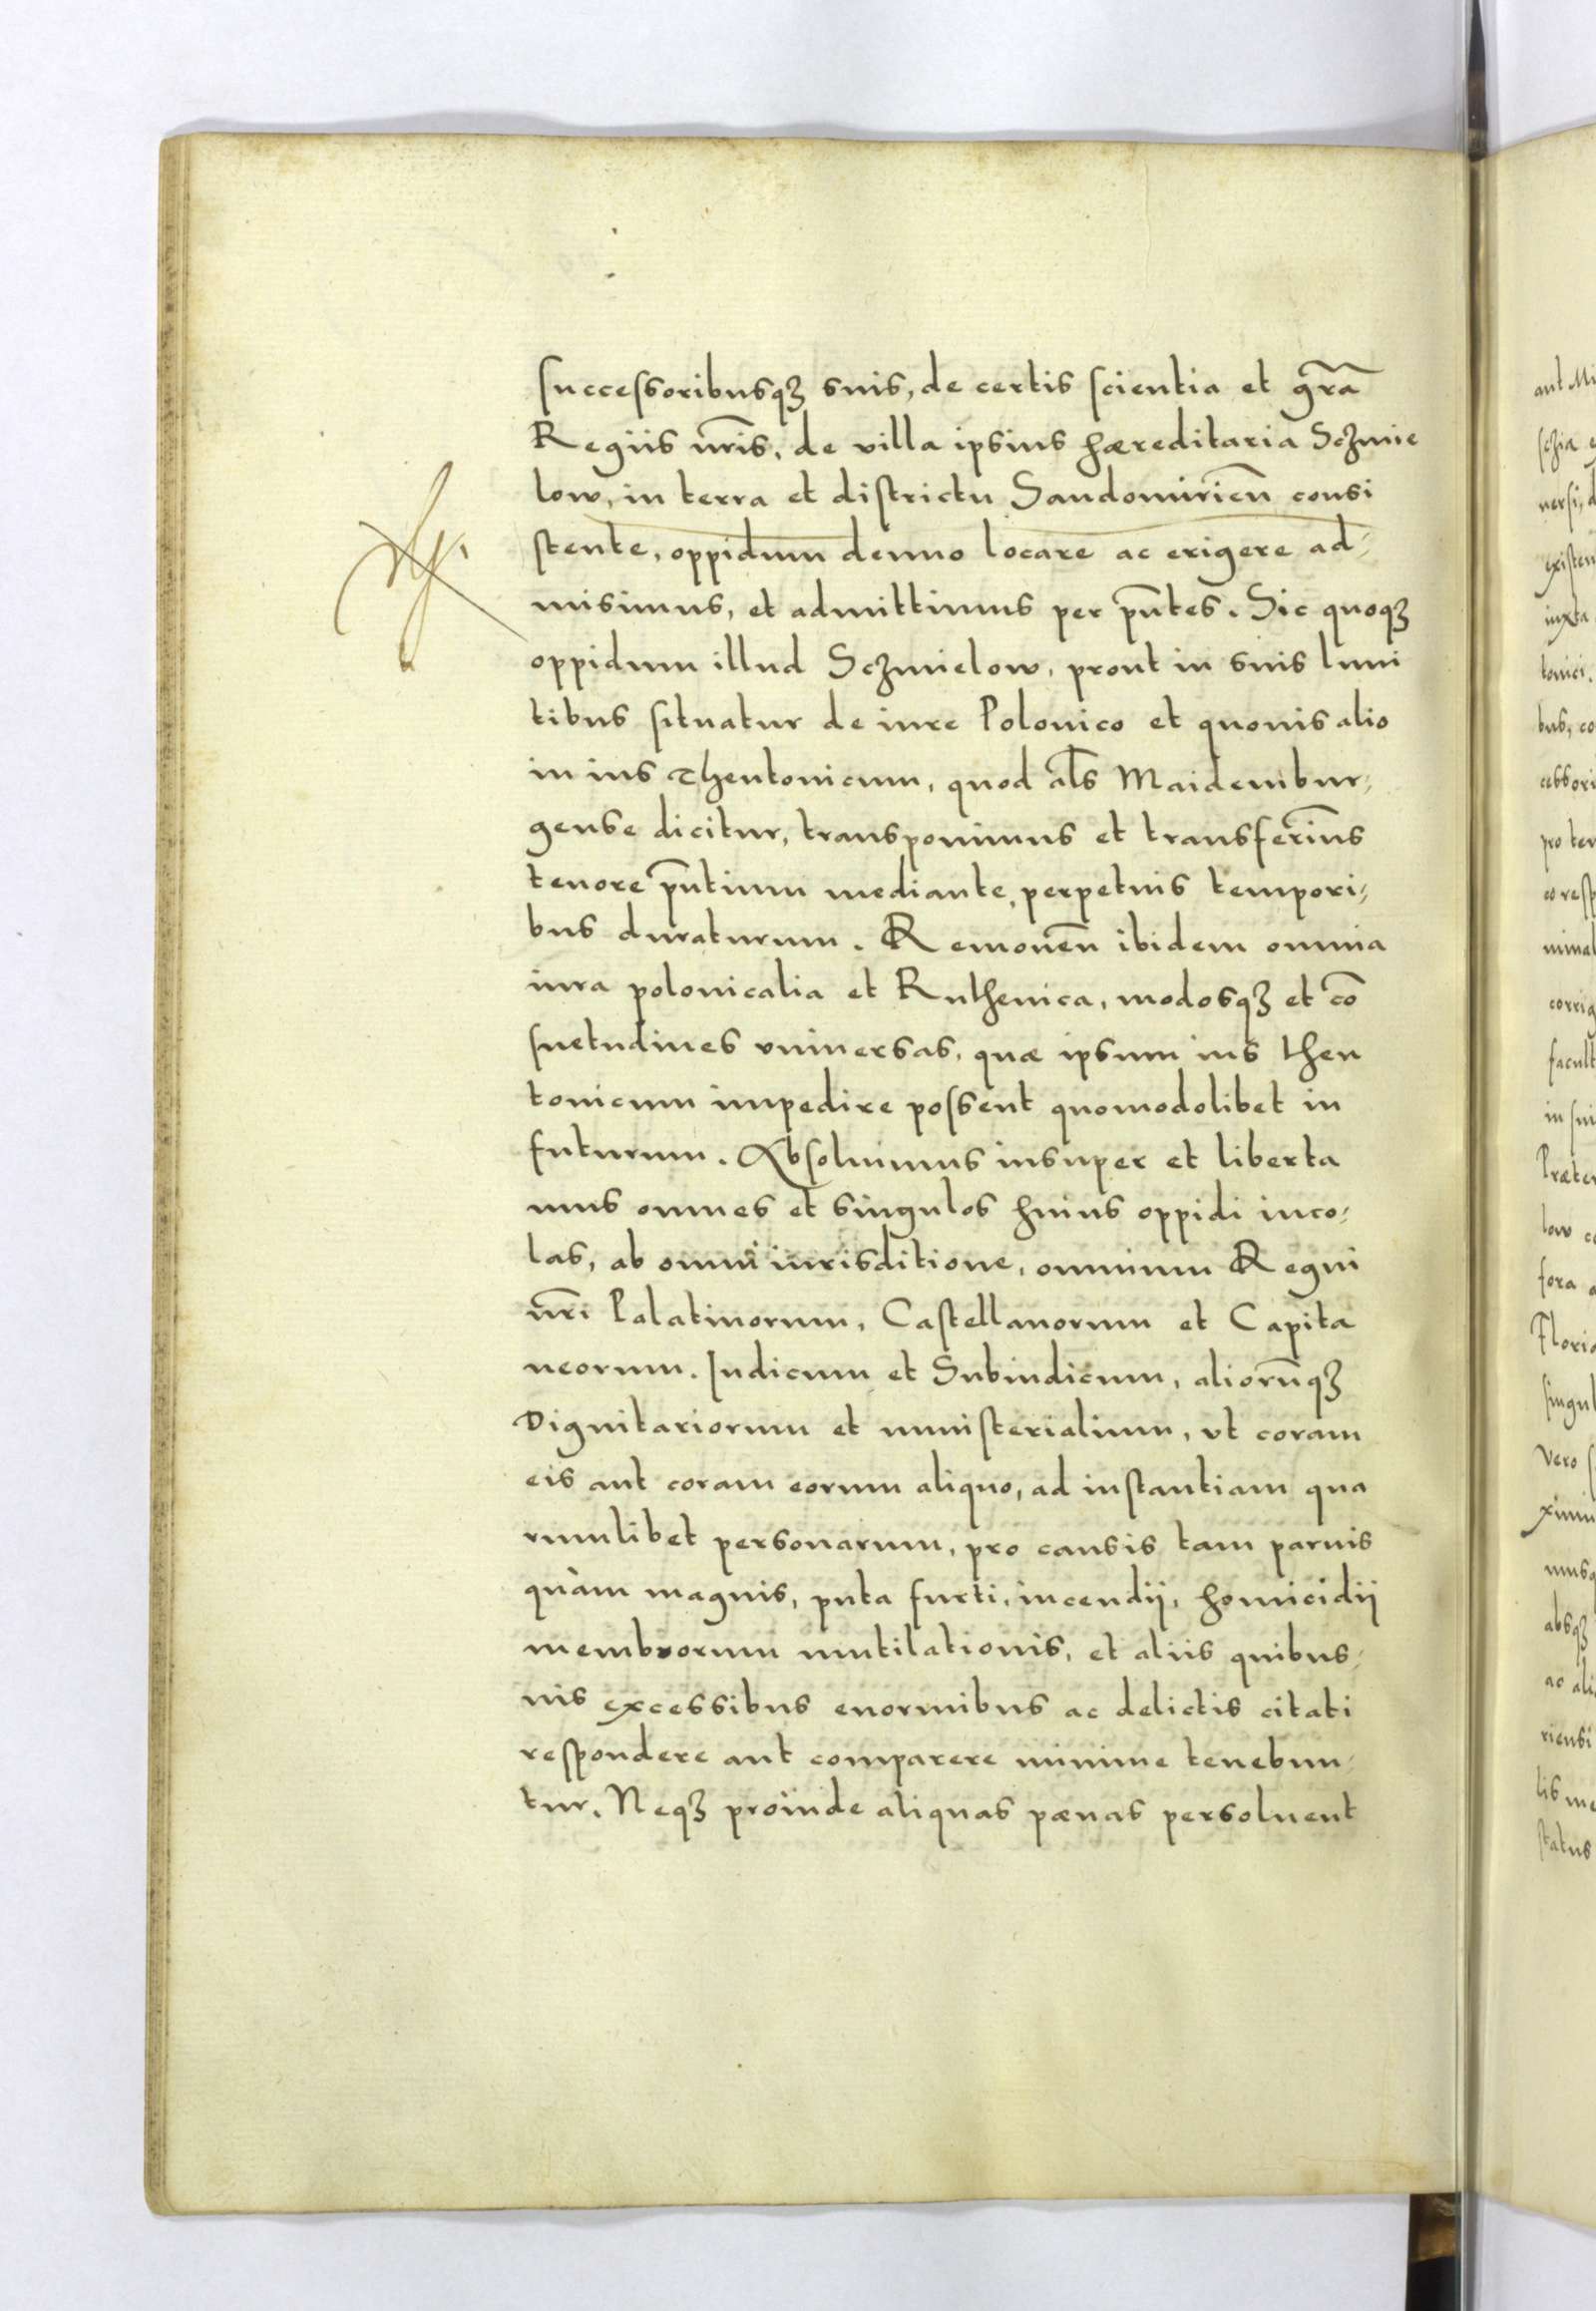 successoribusqȝ suis, de certis scientia et gr̄a
Regiis nr̄is, de villa ipsius hæreditaria Sczmie
low, in terra et districtu Sandomirien̄ consi
stente, oppidum denuo locare ac erigere ad⸗
misimus, et admittimus per pn̄tes. Sic quoqȝ
oppidum illud Sczmielow, prout in suis limi
tibus situatur de iure Polonico et quouis alio
in ius Theutonicum, quod al̄s Maidembur⸗
gense dicitur, transponimus et transferim̄s
tenore pn̄tium mediante, perpetuis tempori⸗
bus duraturum. Remouen̄ ibidem omnia
iura polonicalia et Ruthenica, modosqȝ et cō
suetudines vniuersas, quæ ipsum ius theu
tonicum impedire possent quomodolibet in
futurum. Absoluimus insuper et liberta
mus omnes et singulos huius oppidi inco⸗
las, ab omni iurisditione, omnium Regni
nr̄i Palatinorum, Castellanorum et Capita
neorum. Iudicum et Subiudicum, aliorūqȝ
Dignitariorum et ministerialium, vt coram
eis aut coram eorum aliquo, ad instantiam qua
rumlibet personarum, pro causis tam paruis
quàm magnis, puta furti, incendij, homicidij
membrorum mutilationis, et aliis quibus⸗
uis excessibus enormibus ac delictis citati
respondere aut comparere minime tenebun⸗
tur. Neqȝ proinde aliquas pænas persoluent